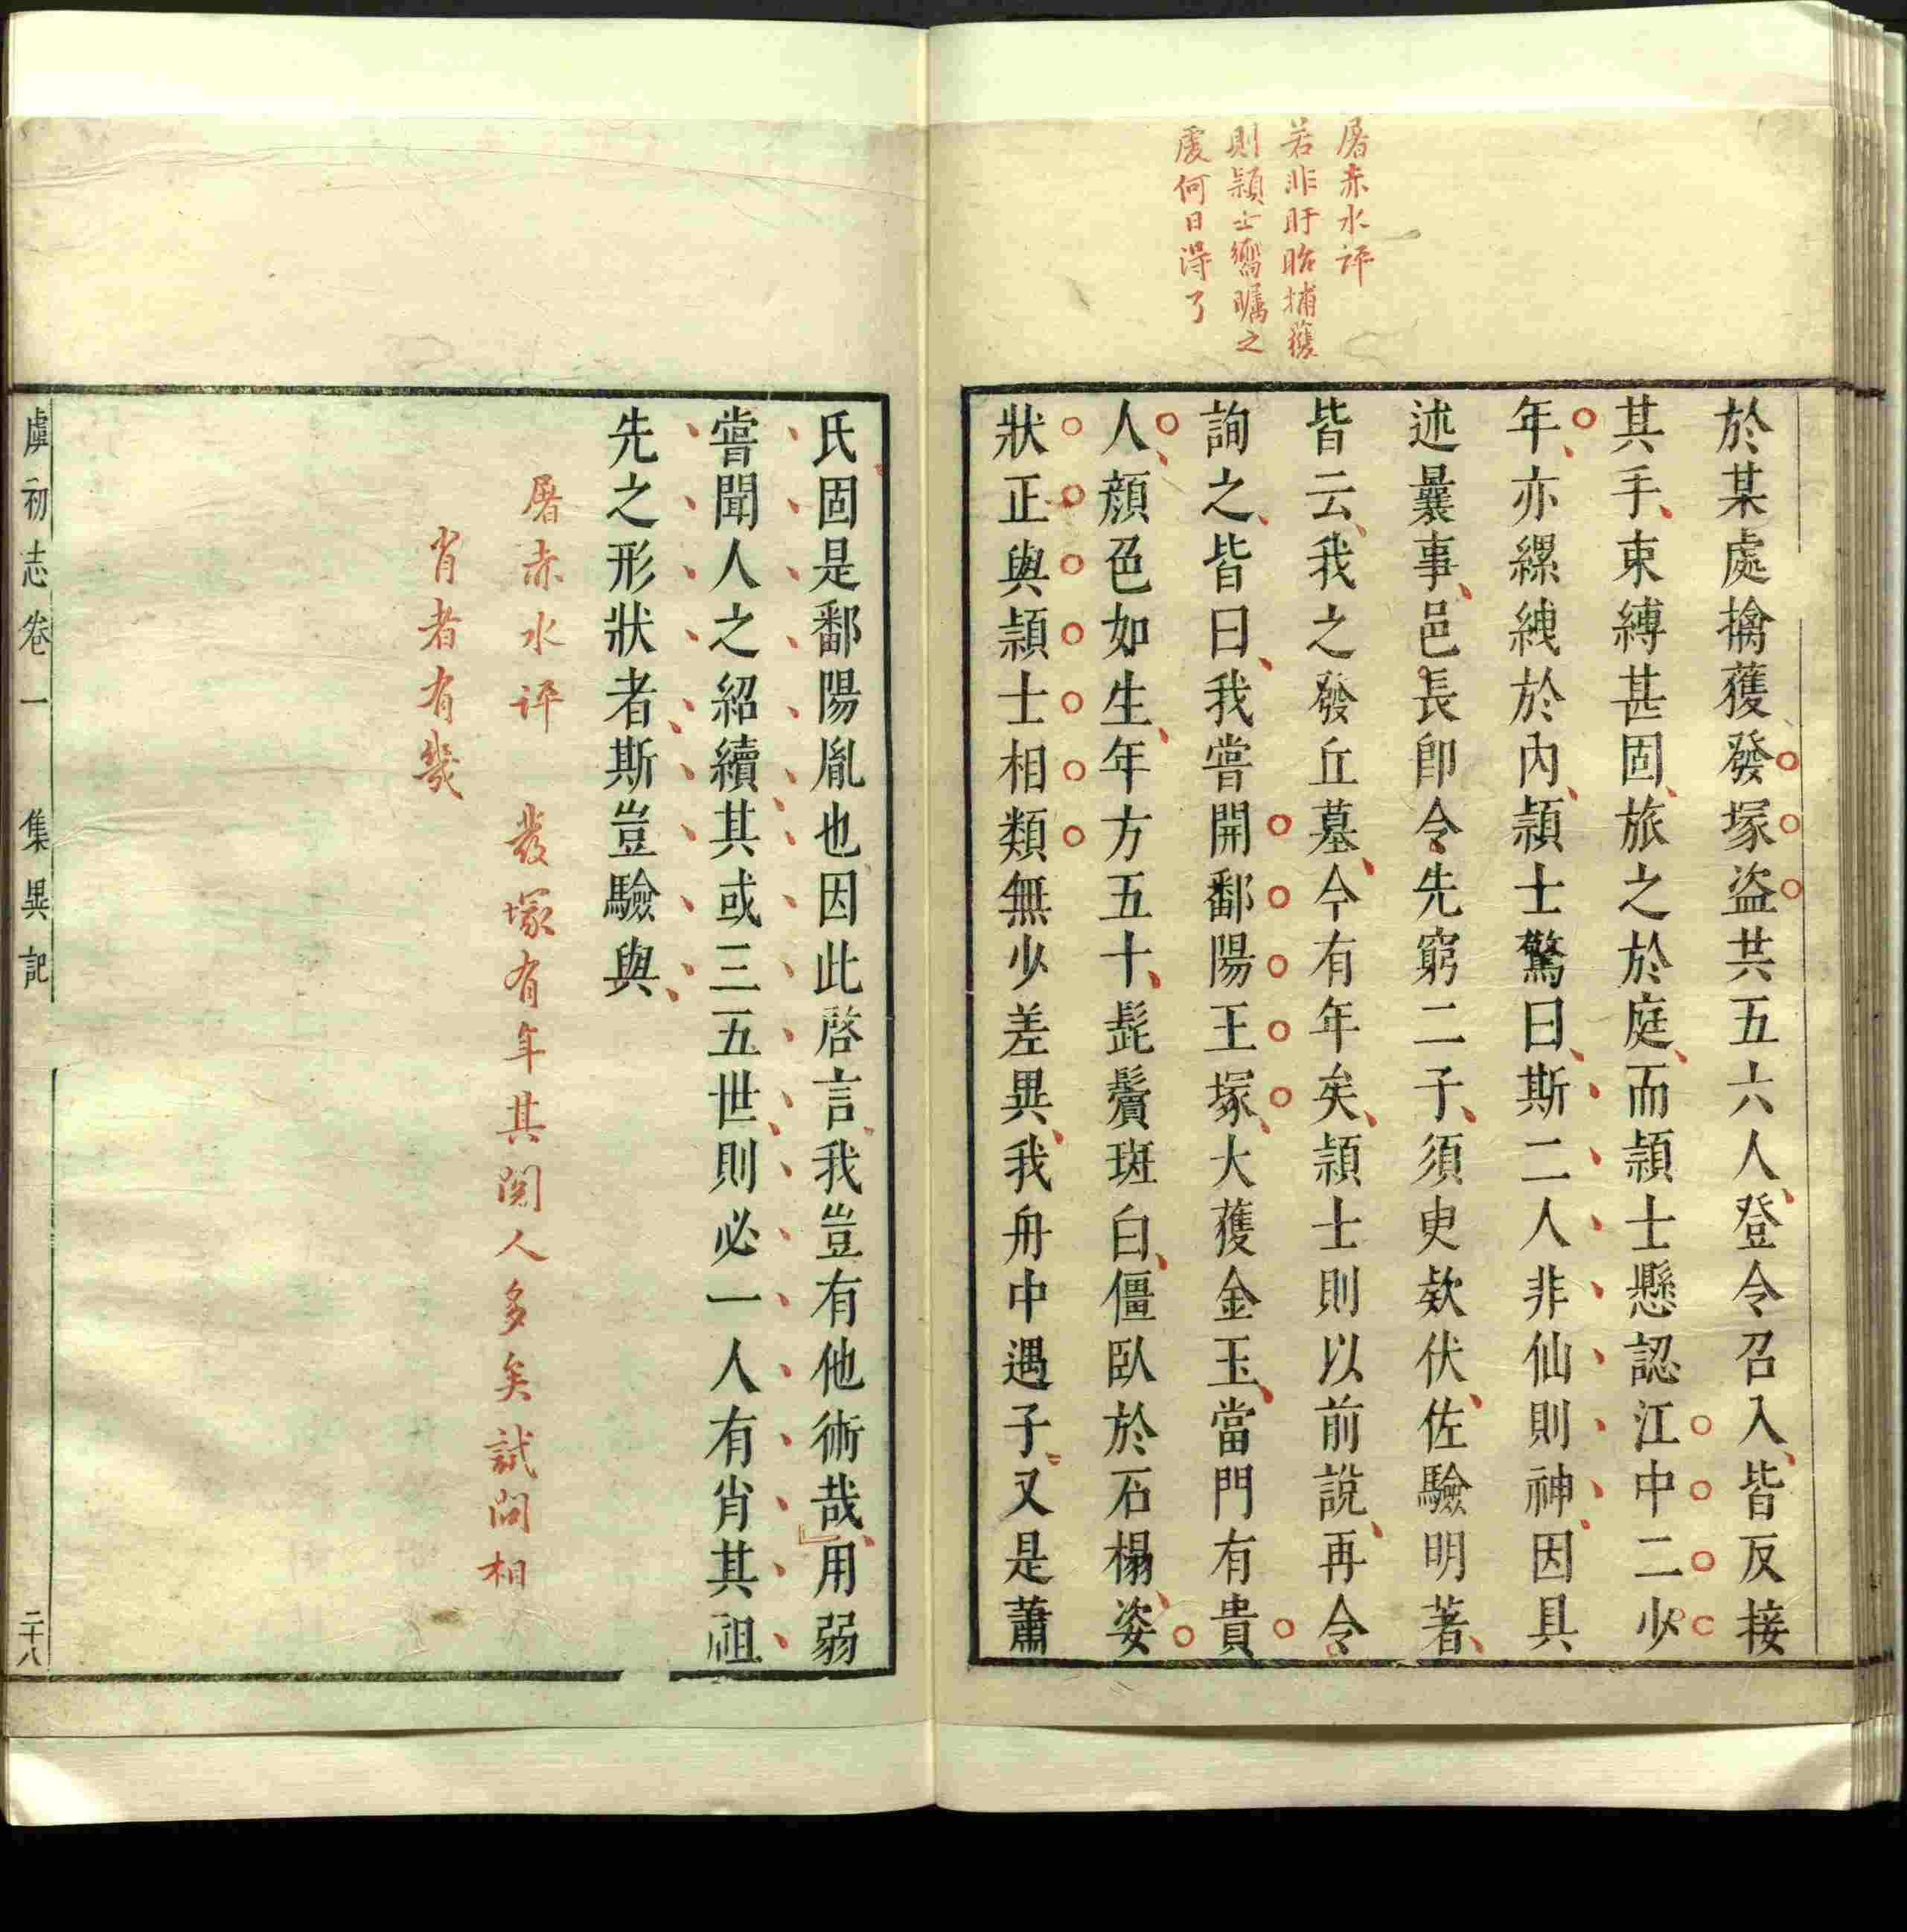 屠赤水評
若非盱眙捕獲
則頴士嚮矚之
處何日得了
於某處擒獲發塚盜共五六人登令召入皆反接
其手束縛甚固旅之於庭而頴士懸認江中二少
年亦縲絏於內頴士驚曰斯二人非仙則神因具
述曩事邑長卽令先窮二子須臾欵伏佐驗明著
皆云我之發丘墓今有年矣頴士則以前說再令
詢之皆曰我嘗開鄱陽王塚大獲金玉當門有貴
人顏色如生年方五十髭鬢斑白僵臥於石榻姿
狀正與頴士相類無少差異我舟中遇子又是蕭
氏固是鄱陽胤也因此啓言我豈有他術哉用弱
嘗聞人之紹續其或三五世則必一人有肖其祖
先之形狀者斯豈驗與
屠赤水評 發塚有年其閱人多矣試問相
肖者有幾
虞初志卷一 集異記 二十八